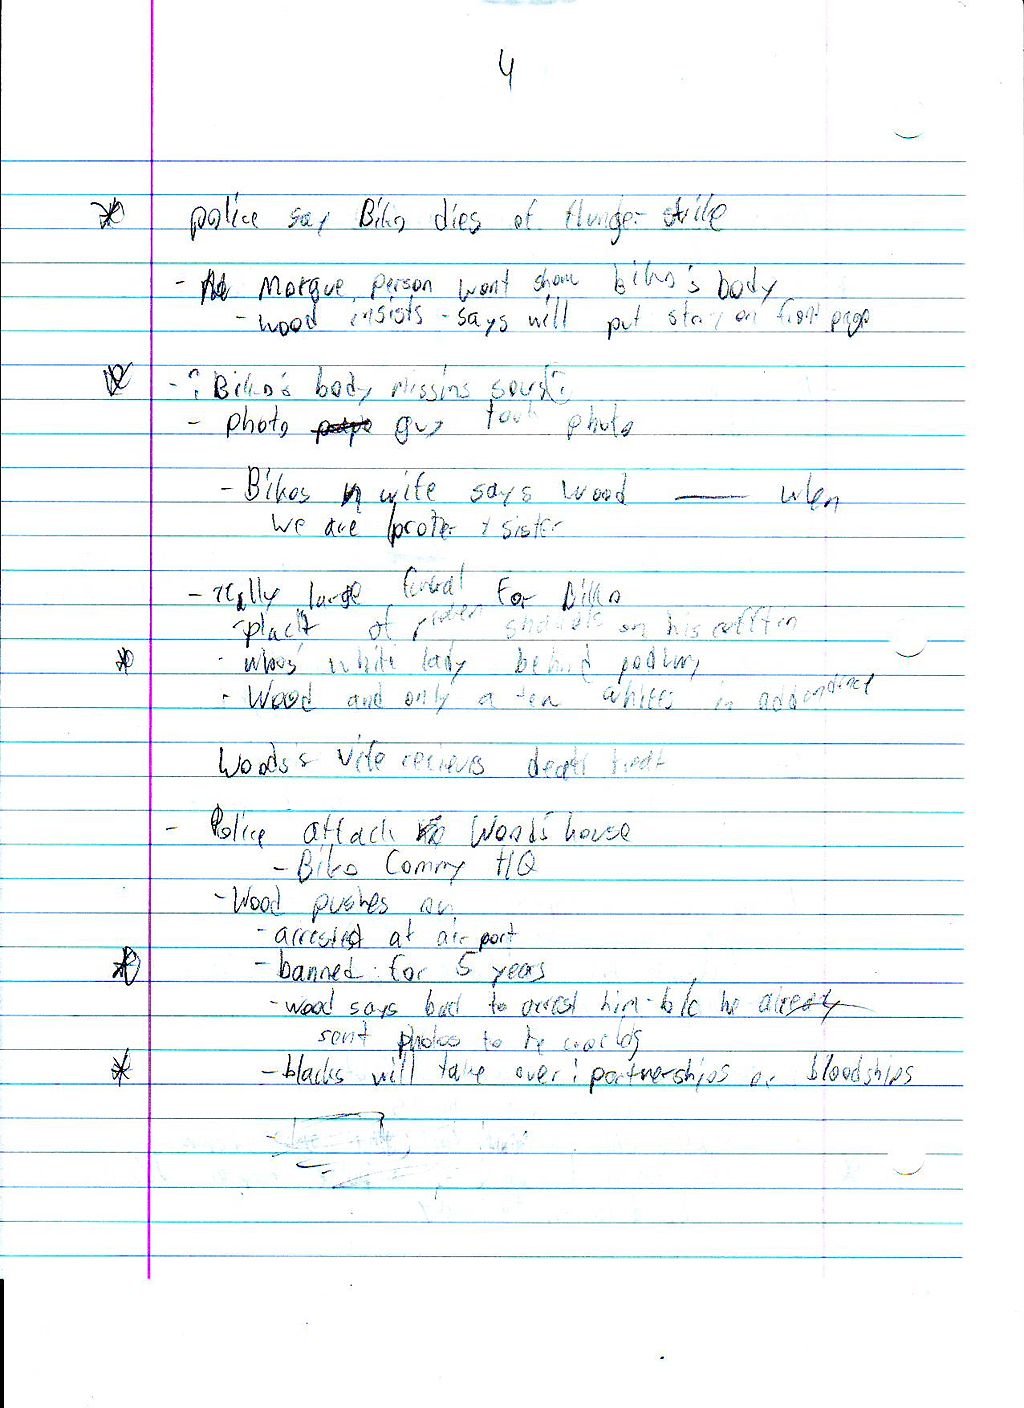 4
police say Biko dies of Hunger strike
- Morgue person wont show biko's body
- wood insists - says will put story on front page
- Biko's body missing
- photo guy took photo
- Bikos wife says Wood —— when
we are broter + sister
- really large funeral For Biko
- of on his cofftin
- white lady behind podium
- Wood and only a few whites in addendance
Woods's vife recieves death treat
- Police attack Wood's house
- Biko Commy HQ
- Wood pushes on
- arrested at air port
- banned for 5 years
- wood says bad to arrest him - b/c he already
sent photos to te world
- blacks will take over: partnerships or bloodships